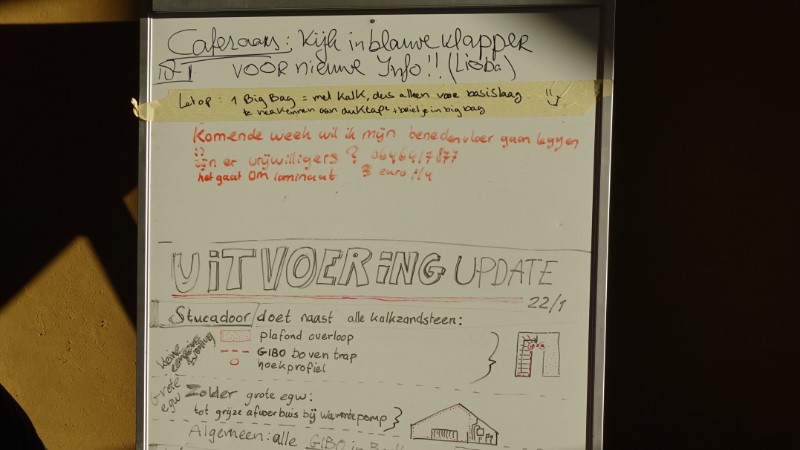 Caferaars: Kijk in blauwe klapper
voor nieuwe Info!! (Lioba)
Let op: 1 Big Bag = met kalk, dus alleen voor basislaag
te herkennen aan ducktape + briefje in big bag
Komende week wil ik mijn benedenvloer gaan leggen
zijn er vrijwilligers?
het gaat om laminaat 3 euro
UITVOERING UPDATE
22/1
Stucadoor doet naast alle kalkzandsteen:
plafond overloop
GIBO boven trap
hoekprofiel
kleine eengezins woning
Grote egw
Zolder grote egw:
tot grijze afvoerbuis bij warmtepomp
Algemeen: alle GIBO in